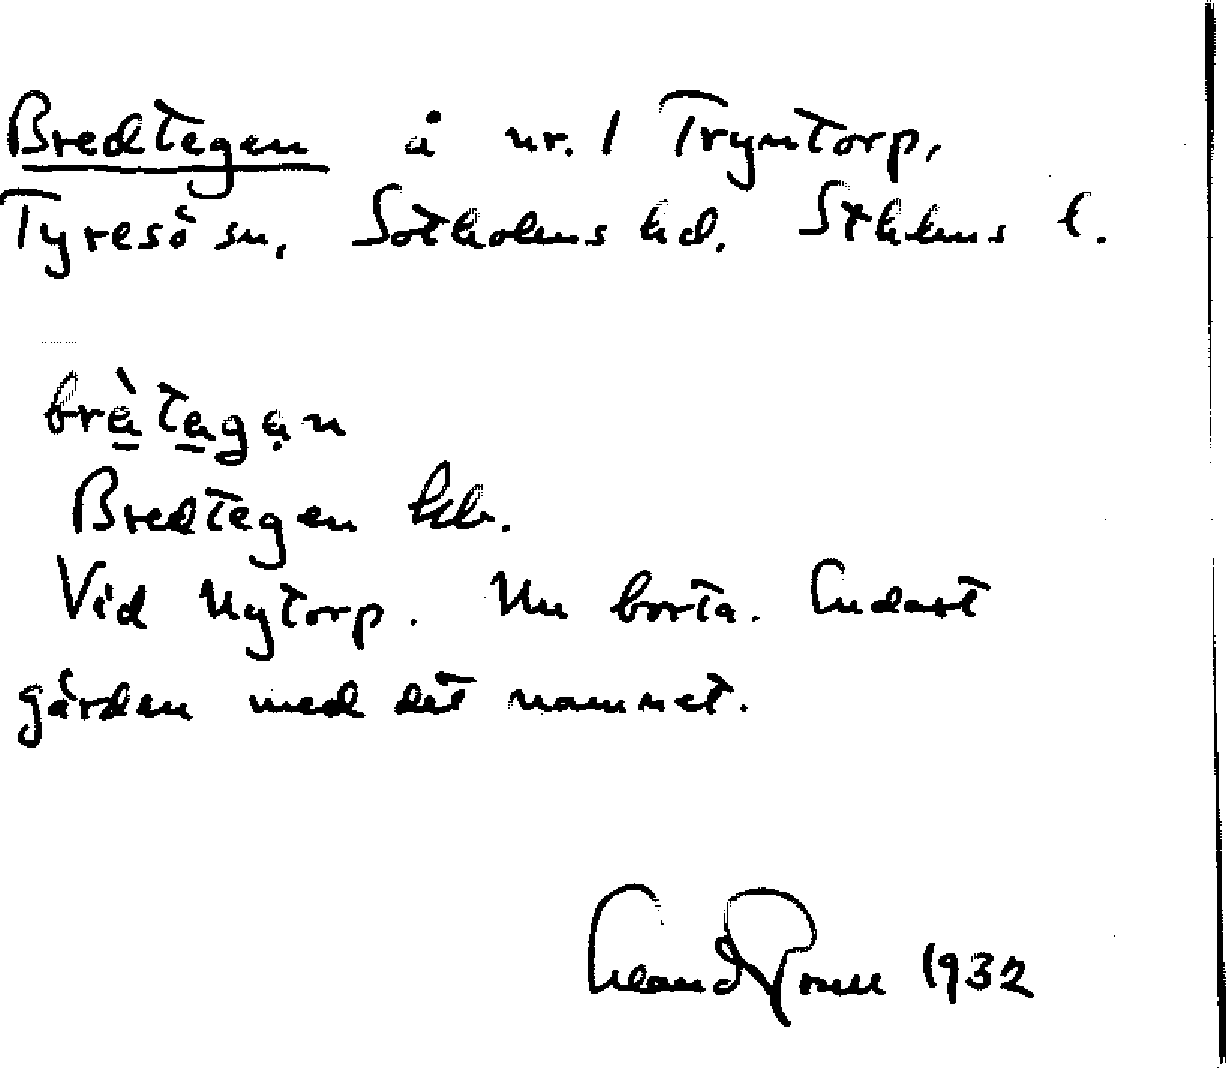 Bredtegen å nr. 1 Tryntorp,
Tyresö sn, Sotholms hd. Sthlms l.
brè̱ta̱gạn
Bredtegen hb.
Vid Nytorp. Nu borta. Endast
gården med det namnet.
1932